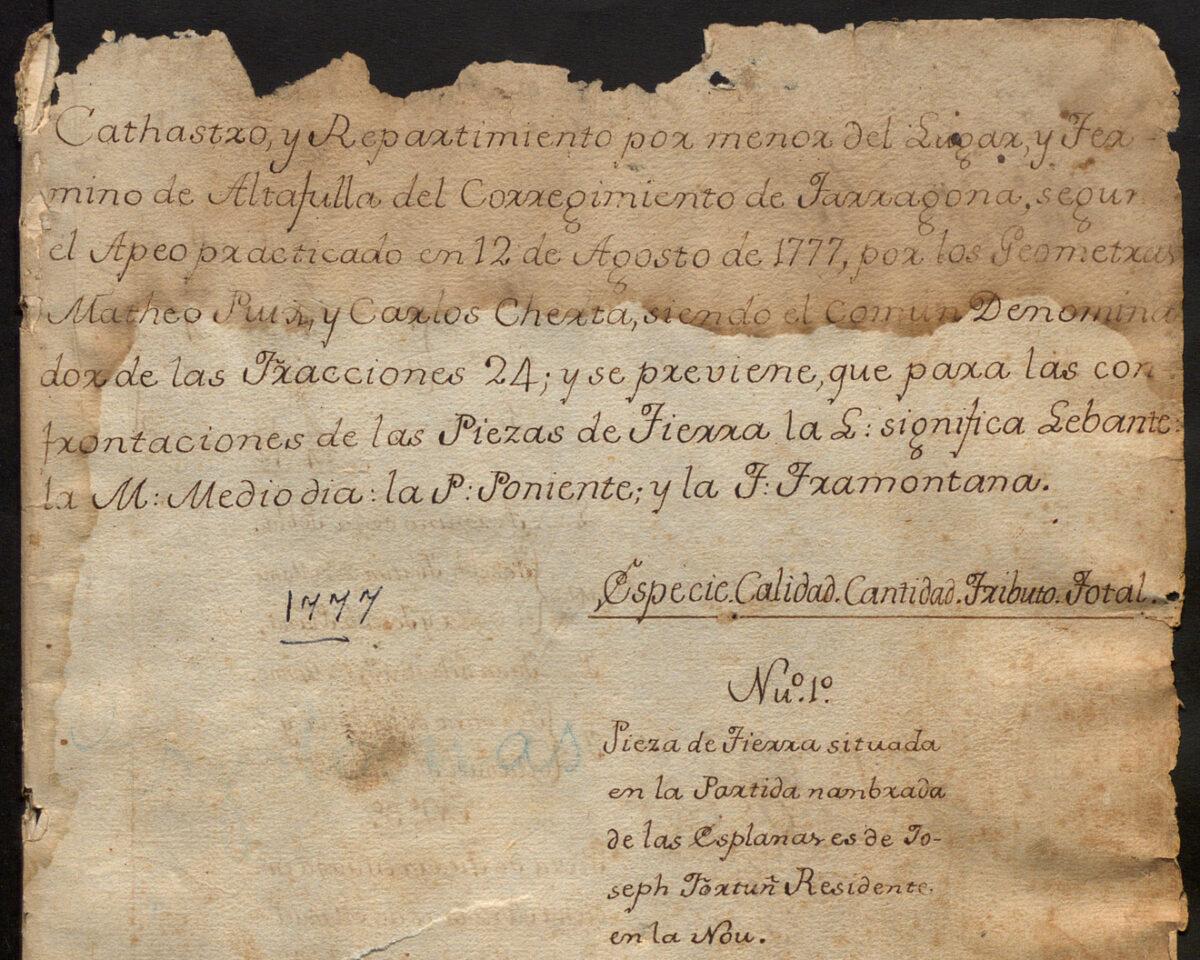 Cathastro, y Repartimiento por menor del Lugar, y Ter-
mino de Altafulla del Corregimiento de Tarragona, segun
el Apeo practicado en 12 de Agosto de 1777, por los Geometras
Matheo Ruiz, y Carlos Cherta, siendo el Común Denomina
dor de las Fracciones 24; y se previene, que para las con
frontaciones de las Piezas de Tierra la L: significa Lebante:
la M: Mediodia: la P: Poniente; y la T: Tramontana.
Especie. Calidad. Cantidad. Tributo. Total.
1777
Nuº. 1º.
Pieza de Tierra situada
en la Partida nambrada
de las Esplanas es de Jo-
seph Fortuñ Residente
en la Nou.